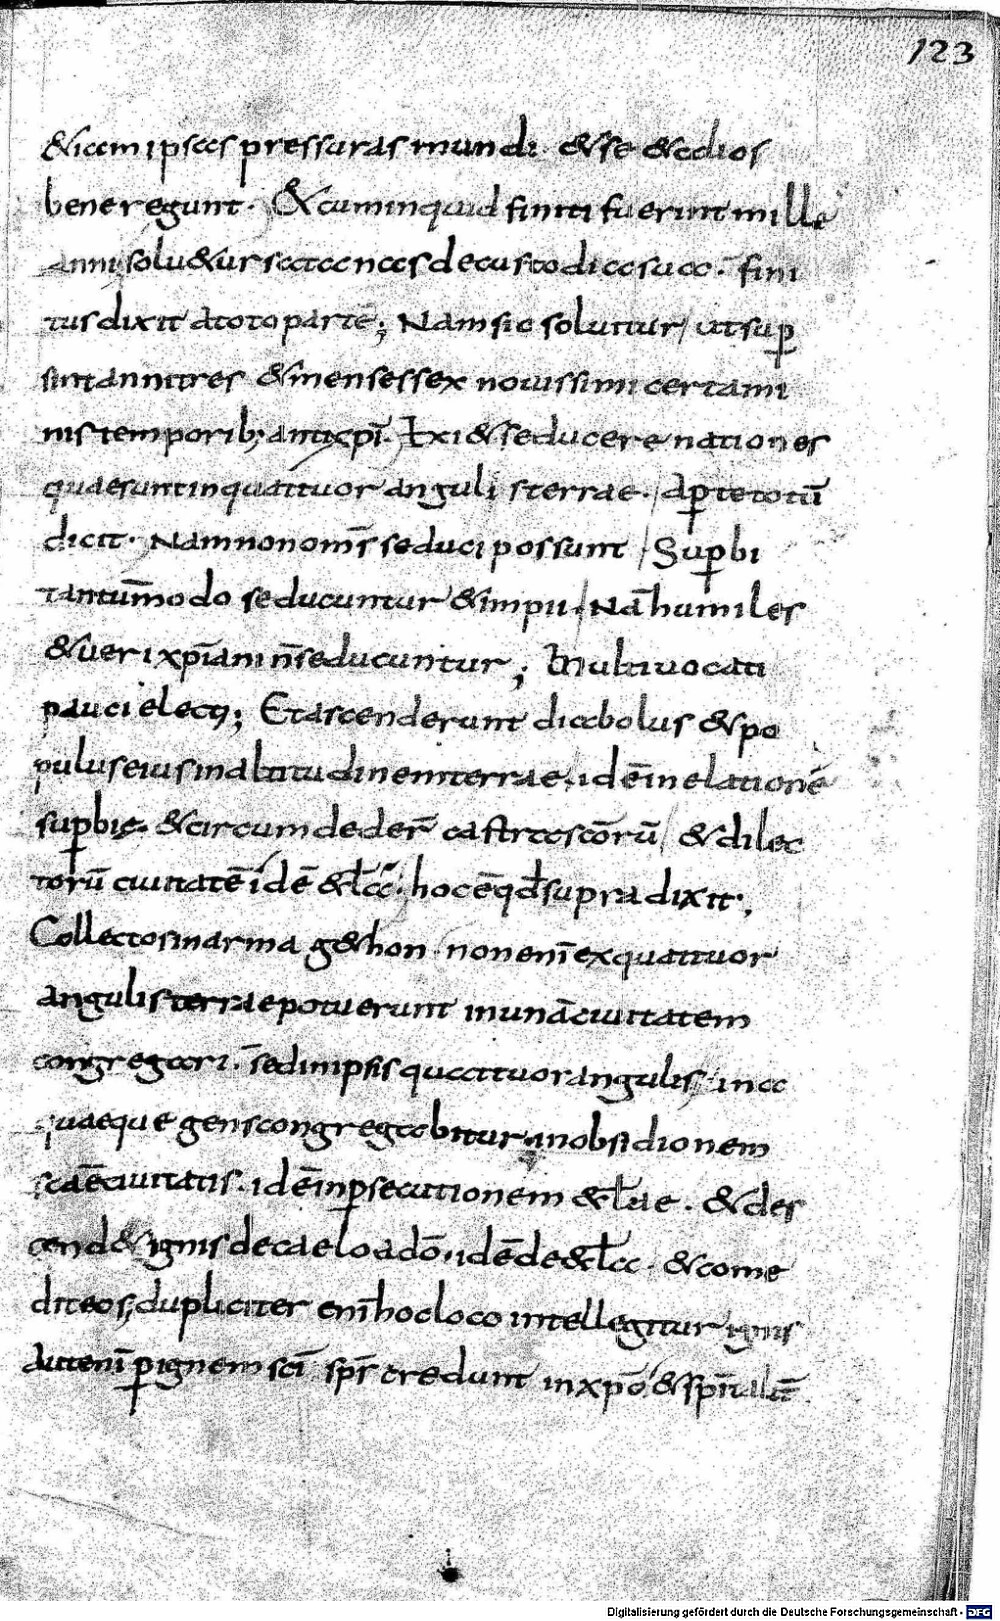 123
&iam ipsas pressuras mundi · & se & alios
bene regunt · & cum inquid finiti fuerint mille
anni solu&ur satanas de custodia sua · fini
tus dixit a toto parte; Nam sic solvitur ut sup̄
sint anni tres & menses sex novissimi certami
nis temporib; antixp̄i · Exi& seducere nationes
quae sunt in quattuor angulis terrae · aꝑte totū
dicit · Nam non om̄s seduci possunt Suꝑbi
tantum̄modo seducuntur & impii · Nā humiles
& veri xp̄iani n̄ seducuntur; Multi vocati
pauci electi; Et ascenderunt diabolus & po
pulus eius in altitudinem terrae · idē in elationē
suꝑbię · & circumdeder̄ castra scōrū & dilec
torū civitatē idē & l̄a · hoc ē qd̄ supra dixit ·,
Collectos in arma g&hon · non enī ex quattuor
angulis terrae potuerunt in unā civitatem
congregari · sed in ipsis quattuor angulis · in a
quaeque gens congregabitur in obsidionem
scāe civitatis · idē in ꝑsecutionem & l̄ae · & des
cend& ignis de caelo a dō · idē de & l̄a · & come
dit eos; dupliciter enī hoc loco intellegitur ignis
aut enī ꝑ ignem sc̄i sp̄s credunt in xp̄o &